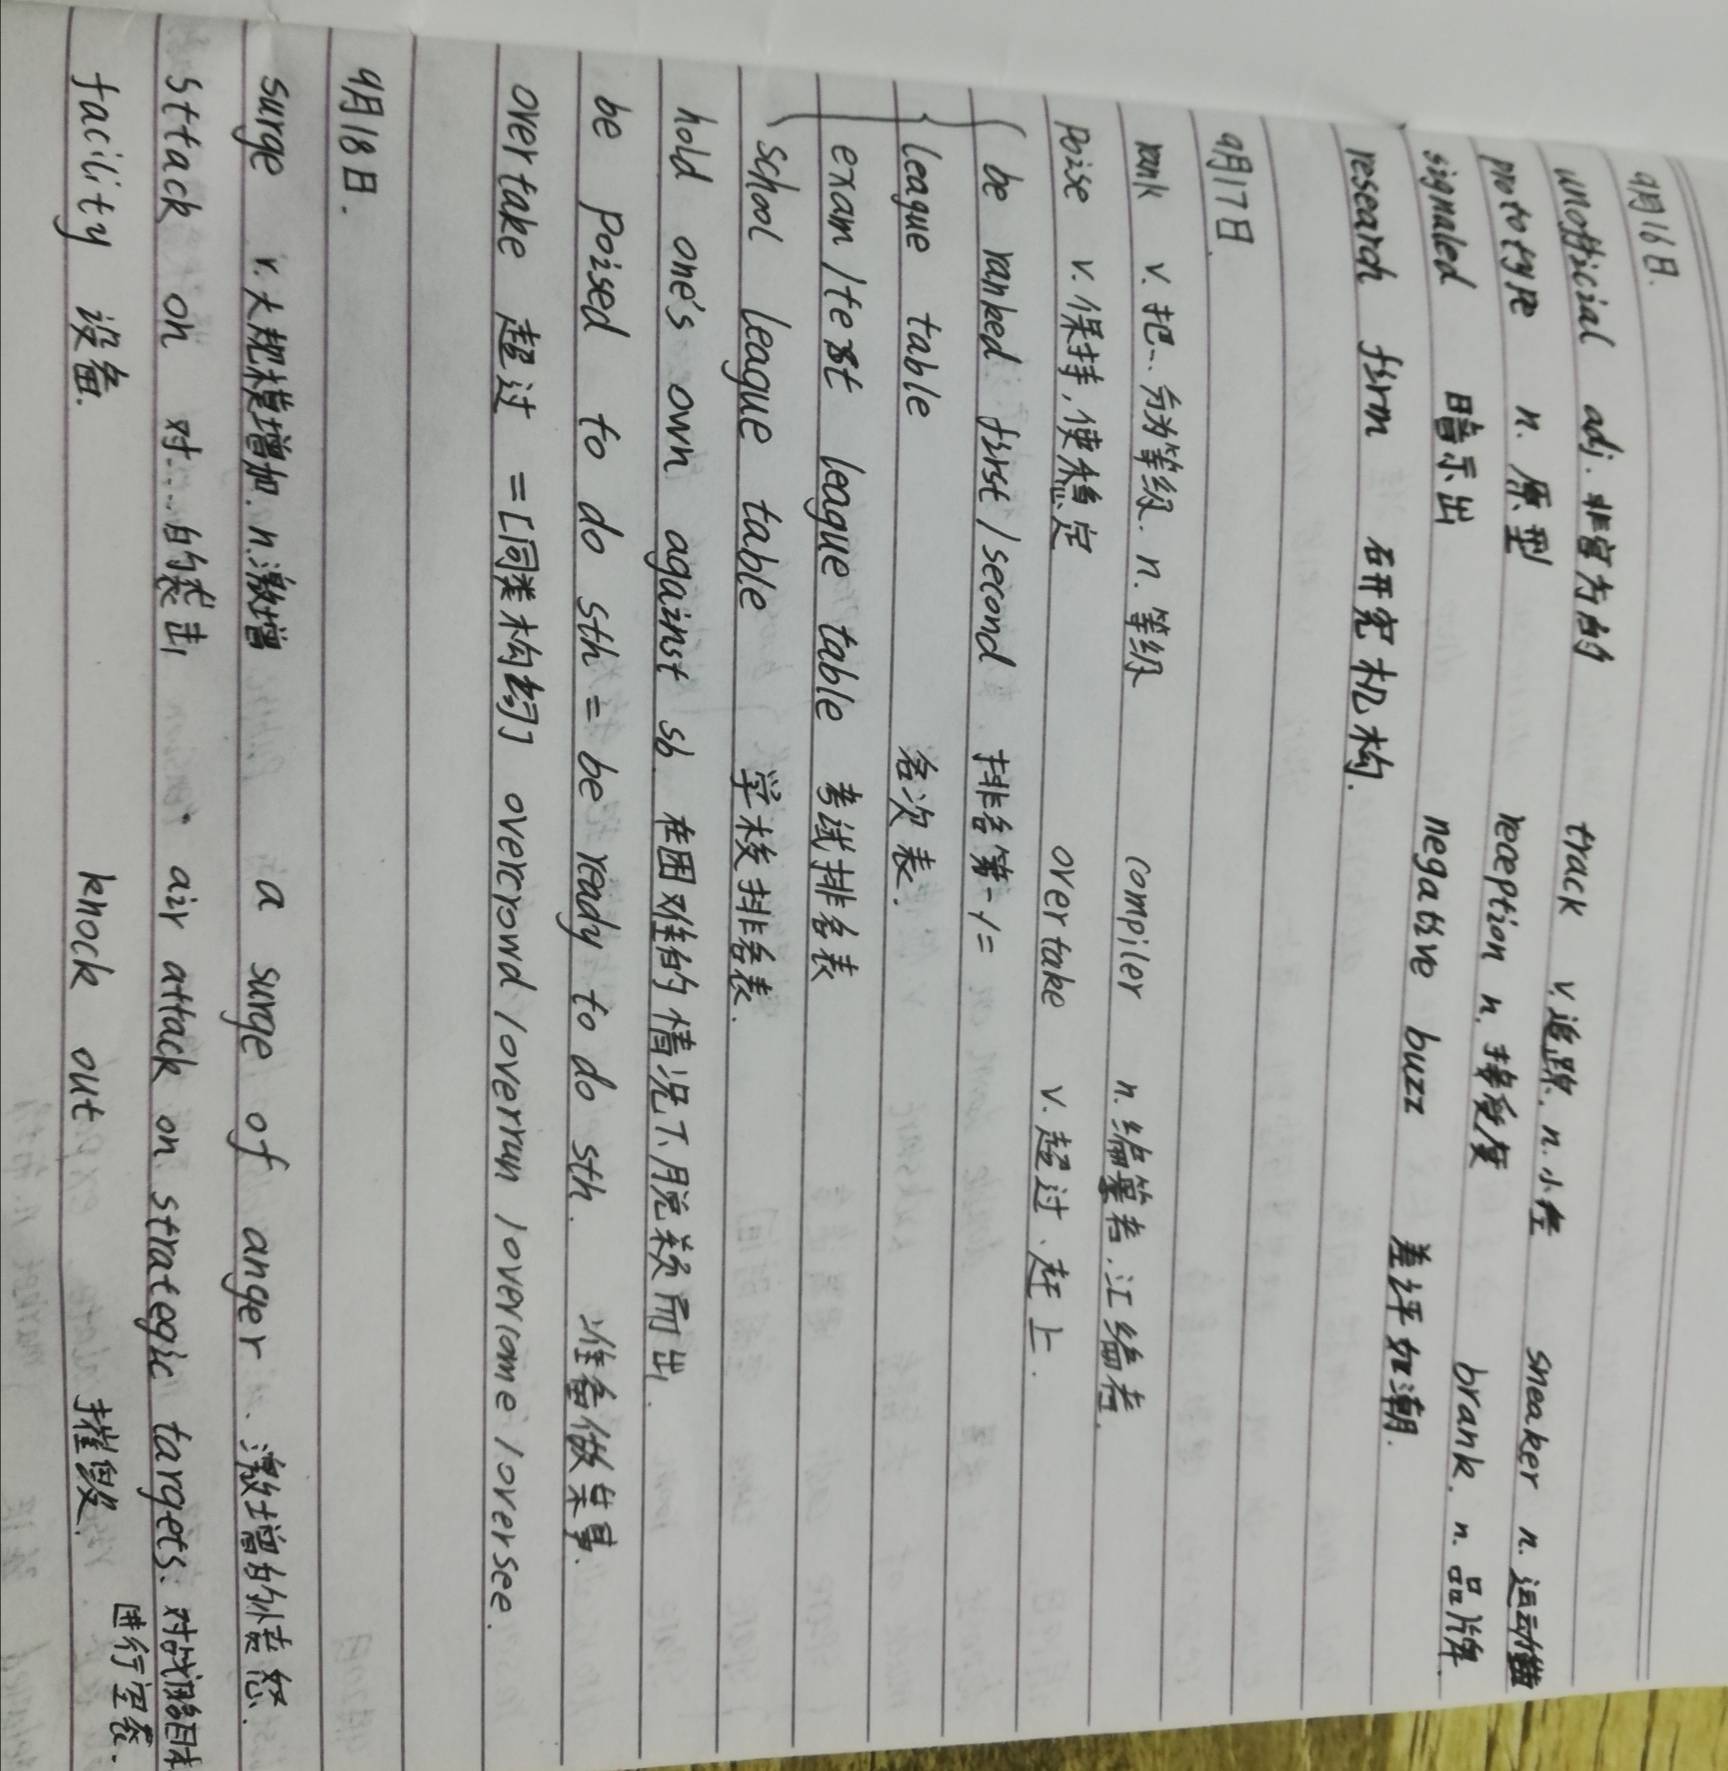 9月16日.
unofficial adj. 非官方的 track v.追踪. n.小径 sneaker n.运动鞋
prototype n. 原型 reception n. 接受度 brank. n. 品牌.
signaled 暗示出 negative buzz 差评如潮.
research firm 研究机构.
9月17日.
rank v. 把…分为等级. n. 等级 compiler n.编纂者.汇编者.
poise v.保持,使稳定 overtake v.超过.赶上.
be ranked first/second 排名第一/二
league table 名次表.
exam/test league table 考试排名表
school league table 学校排名表.
hold one's own against sb. 在困难的情况下脱颖而出.
be poised to do sth = be ready to do sth. 准备做某事.
overtake 超过 =[同类构词] overcrowd/overrun/overcome/oversee.
9月18日.
surge v.大规模增加. n.激增 a surge of anger. 激增的愤怒.
sttack on 对……的袭击 · air attack on strategic targets: 对战略目标
进行空袭.
facility 设备. knock out 摧毁.